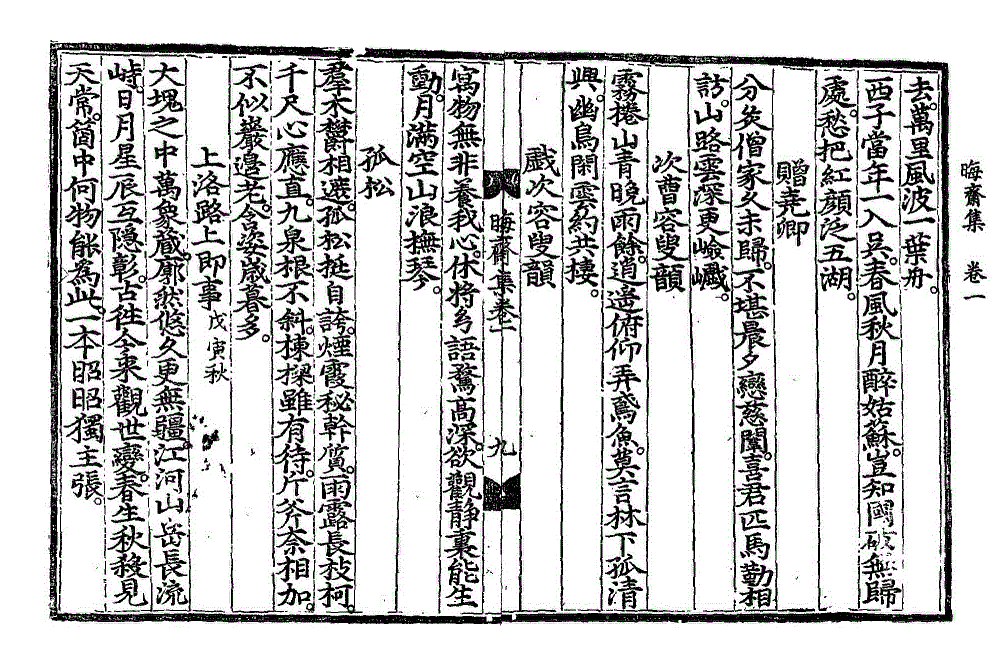 晦齋集　卷一
去。萬里風波一葉舟。
西子當年一入吳。春風秋月醉姑蘇。豈知國破無歸
處。愁把紅顏泛五湖。
贈堯卿
分炙僧家久未歸。不堪晨夕戀慈闈。喜君匹馬勤相
訪。山路雲深更嶮巇。
次曹容叟韻
霧捲山靑晚雨餘。逍遙俯仰弄鳶魚。莫言林下孤淸
興。幽鳥閑雲約共棲。
戲次容叟韻
晦齋集卷一
九
寓物無非養我心。休將多語騖高深。欲觀靜裏能生
動。月滿空山浪撫琴。
孤松
羣木欝相遮。孤松挺自誇。煙霞秘幹質。雨露長枝柯。
千尺心應直。九泉根不斜。棟樑雖有待。斤斧奈相加。
不似巖邊老。含姿歲暮多。
上洛路上卽事 戊寅秋
大塊之中萬象藏。廓然悠久更無疆。江河山岳長流
峙。日月星辰互隱彰。占往今來觀世變。春生秋殺見
天常。箇中何物能爲此。一本昭昭獨主張。